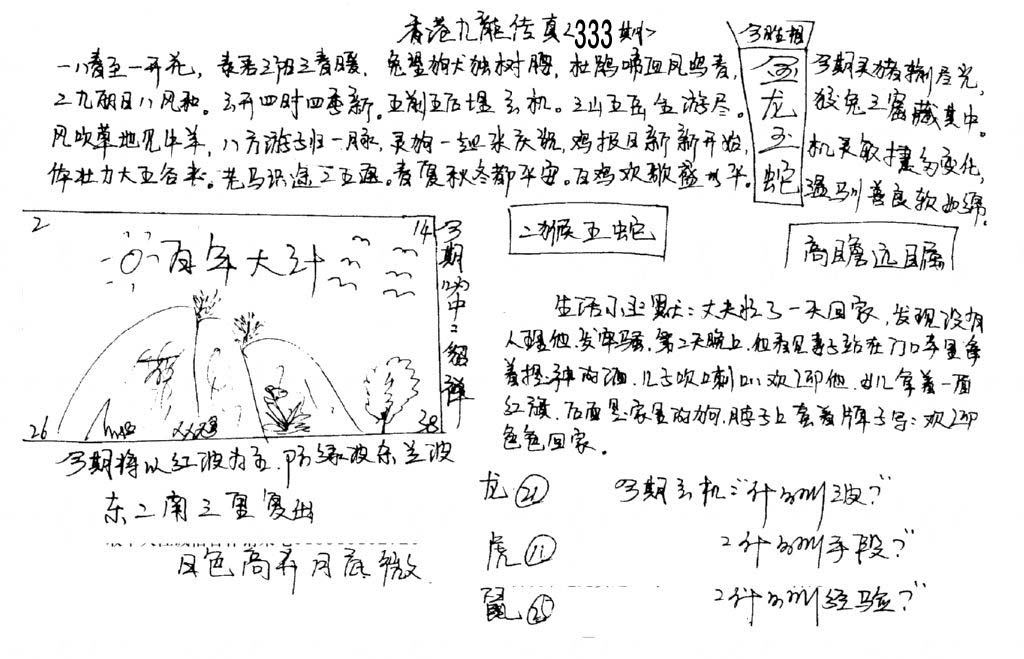 香港九龍传真<333期>
今胜相
一八春至一开花，春君三阳三春暖，兔望狗犬独树腰，杜鹃啼血凤鸣春，
二九朋日八风和。玄开四时四季新。五前五后埋玄机。三山五岳金游尽。
风吹草地见牛羊，八方游子归一脉，灵狗一起来庆祝，鸡报日新新开始，
体壮力大五谷来。老马识途二五遇。春夏秋冬都平安。百鸡欢歌盛水平。
金龙玉蛇
今期灵猪输尽光，
狡兔三窟藏其中。
机灵敏捷多变化，
温驯善良软如绵。
2
14
百年大计
26
38
今期
中二
二猴五蛇
高瞻远瞩
生活小幽默：丈夫忙了一天回家，发现没有
人理他，发牢骚，第二天晚上，他看见妻子站在门口手里拿
着提神的酒，儿子吹喇叭欢迎他，女儿拿着一面
红旗，后面是家里的狗，脖子上套着牌子写：欢迎
色色回家。
今期将以红波为主，防绿波东兰波
东二南三里复出
月色高弄月底微
龙 21
虎 11
鼠 25
今期玄机："什么叫三波？"
2什么叫手段？"
2什么叫经验？"